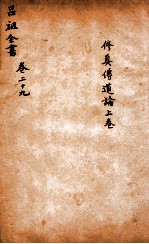 修真傳道論上卷
呂祖全書 卷二十九